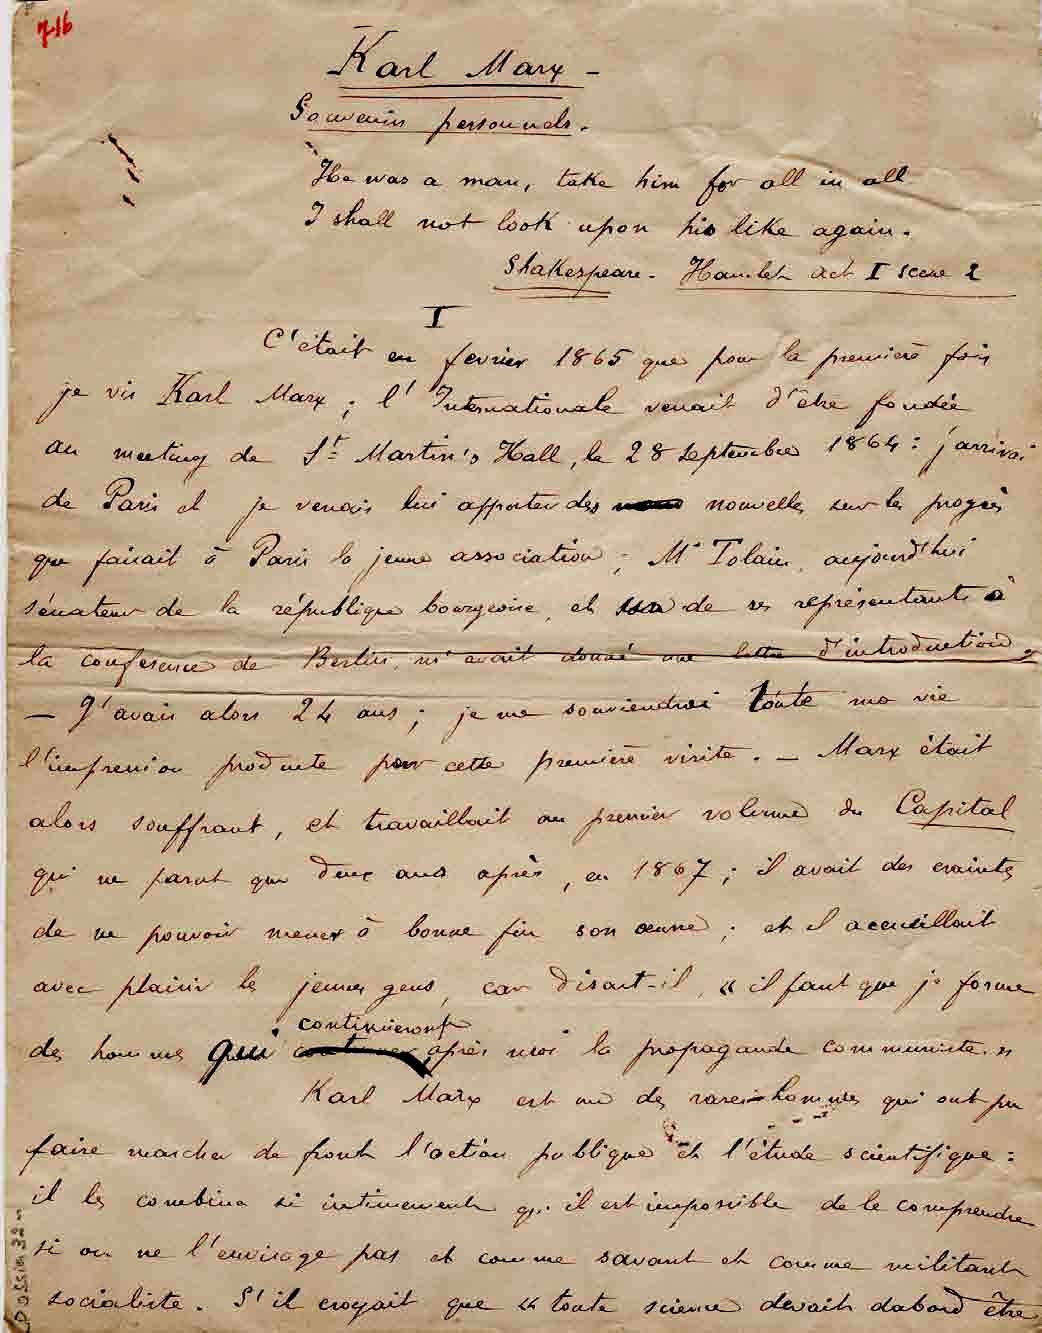 716
Karl Marx -
Souvenirs personnels.
He was a man, take him for all in all
I shall not look upon his like again.
Shakespeare - Hamlet act I scene 2
I
C'était en fevrier 1865 que pour la première fois
je vis Karl Marx ; l'Internationale venait d'être fondée
au meeting de St Martin's Hall, le 28 septembre 1864 : j'arrivai
de Paris et je venais lui apporter des nouvelles sur les progrès
que faisait à Paris la jeune association ; Mr Tolain, aujourd'hui
sénateur de la république bourgeoise, et de ses représentants à
la conference de Berlin, m'avait donné une lettre d'introduction.
— J'avais alors 24 ans ; je me souviendrai toute ma vie
l'impression produite par cette première visite. — Marx était
alors souffrant, et travaillait au premier volume du Capital
qui ne parut que deux ans après, en 1867 ; il avait des craintes
de ne pouvoir mener à bonne fin son œuvre ; et il accueillait
avec plaisir les jeunes gens, car disait-il, « il faut que je forme
continueront
des hommes qui après moi la propagande communiste. »
Karl Marx est un des rares hommes qui ont pu
faire marcher de front l'action publique et l'étude scientifique :
il les combina si intimement qu'il est impossible de le comprendre
si on ne l'envisage pas et comme savant et comme militant
socialiste. S'il croyait que « toute science devait dabord être
Dossier 32